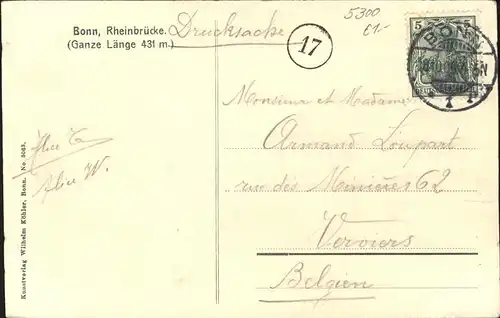 Bonn, Rheinbrücke.
(Ganze Länge 431 m.)
Drucksache
17
5300
€1.-
5
BONN
1
Monsieur et Madame
Armand Loupart
rue des Minières 62
Verviers
Belgien
Alice W.
Kunstverlag Wilhelm Köhler, Bonn. No. 3063.